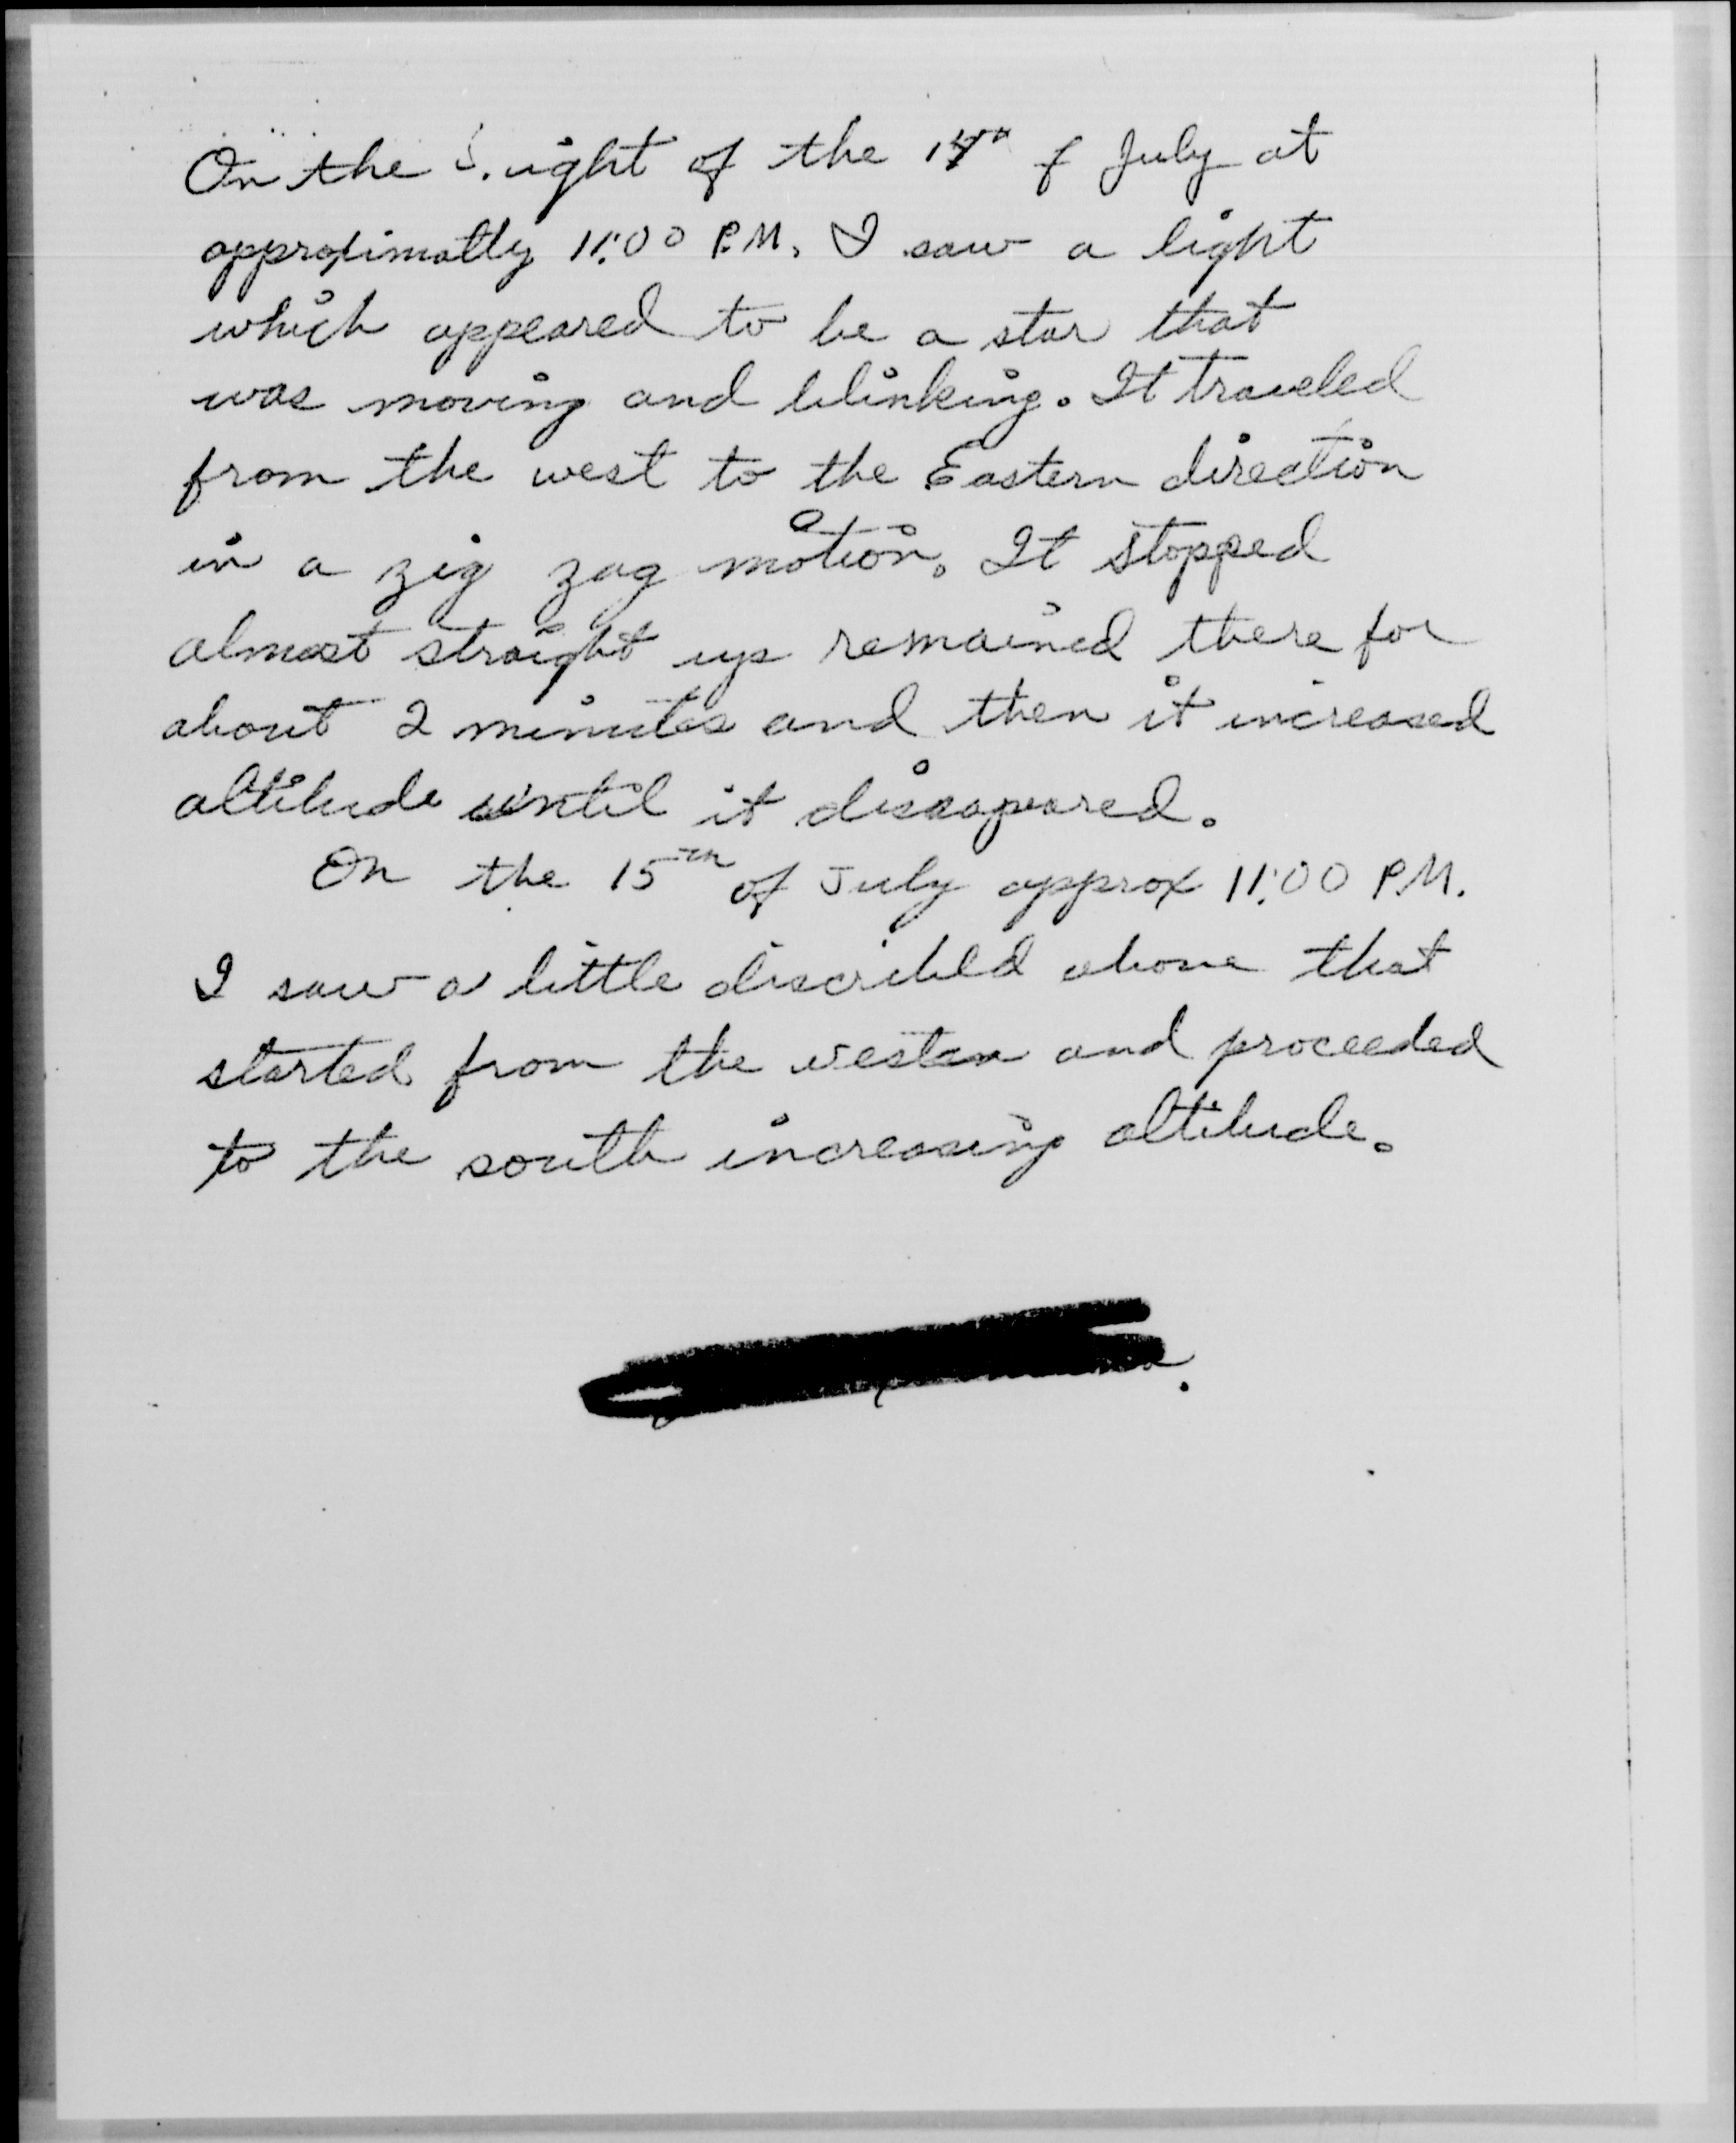 On the night of the 14th of July at
approximatly 11:00 P.M. I saw a light
which appeared to be a star that
was moving and blinking. It traveled
from the west to the Eastern direction
in a zig zag motion. It stopped
almost straight up remained there for
about 2 minutes and then it increased
altitude until it disaapeared.
On the 15th of July approx 11:00 P.M.
I saw a little discribed above that
started from the western and proceeded
to the south increasing altitude.